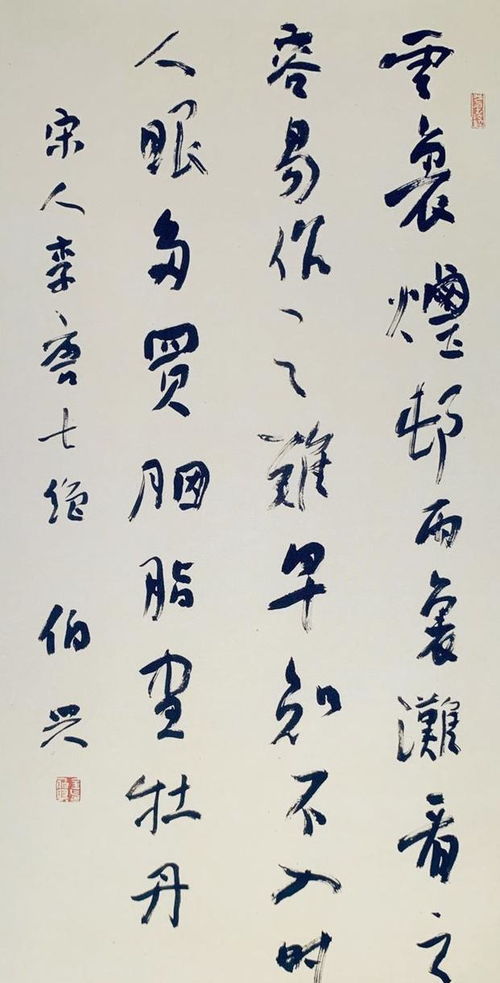 雲裏煙邨雨裏灘看之
容易作之難早知不入时
人眼多買胭脂畫牡丹
宋人李唐七绝 伯兴